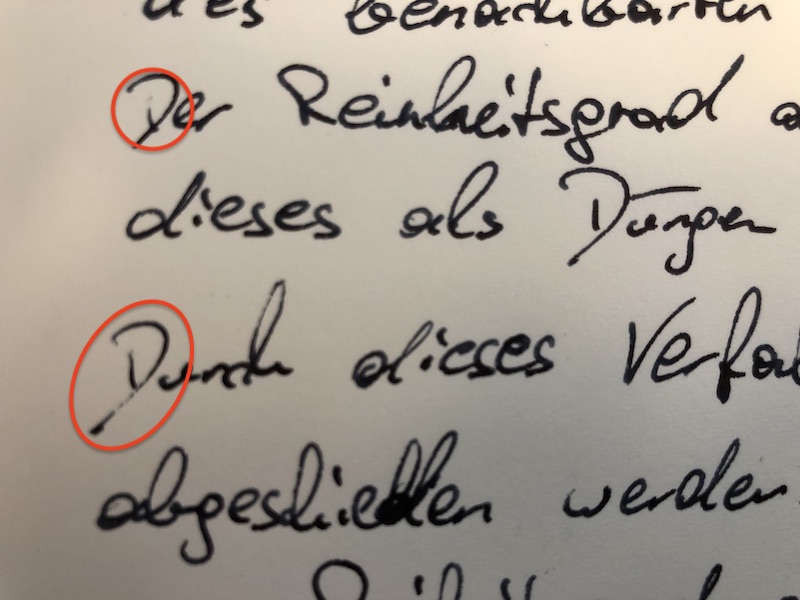 des benachbarten
Der Reinheitsgrad
dieses als Dünger
Durch dieses
abgeschieden werden